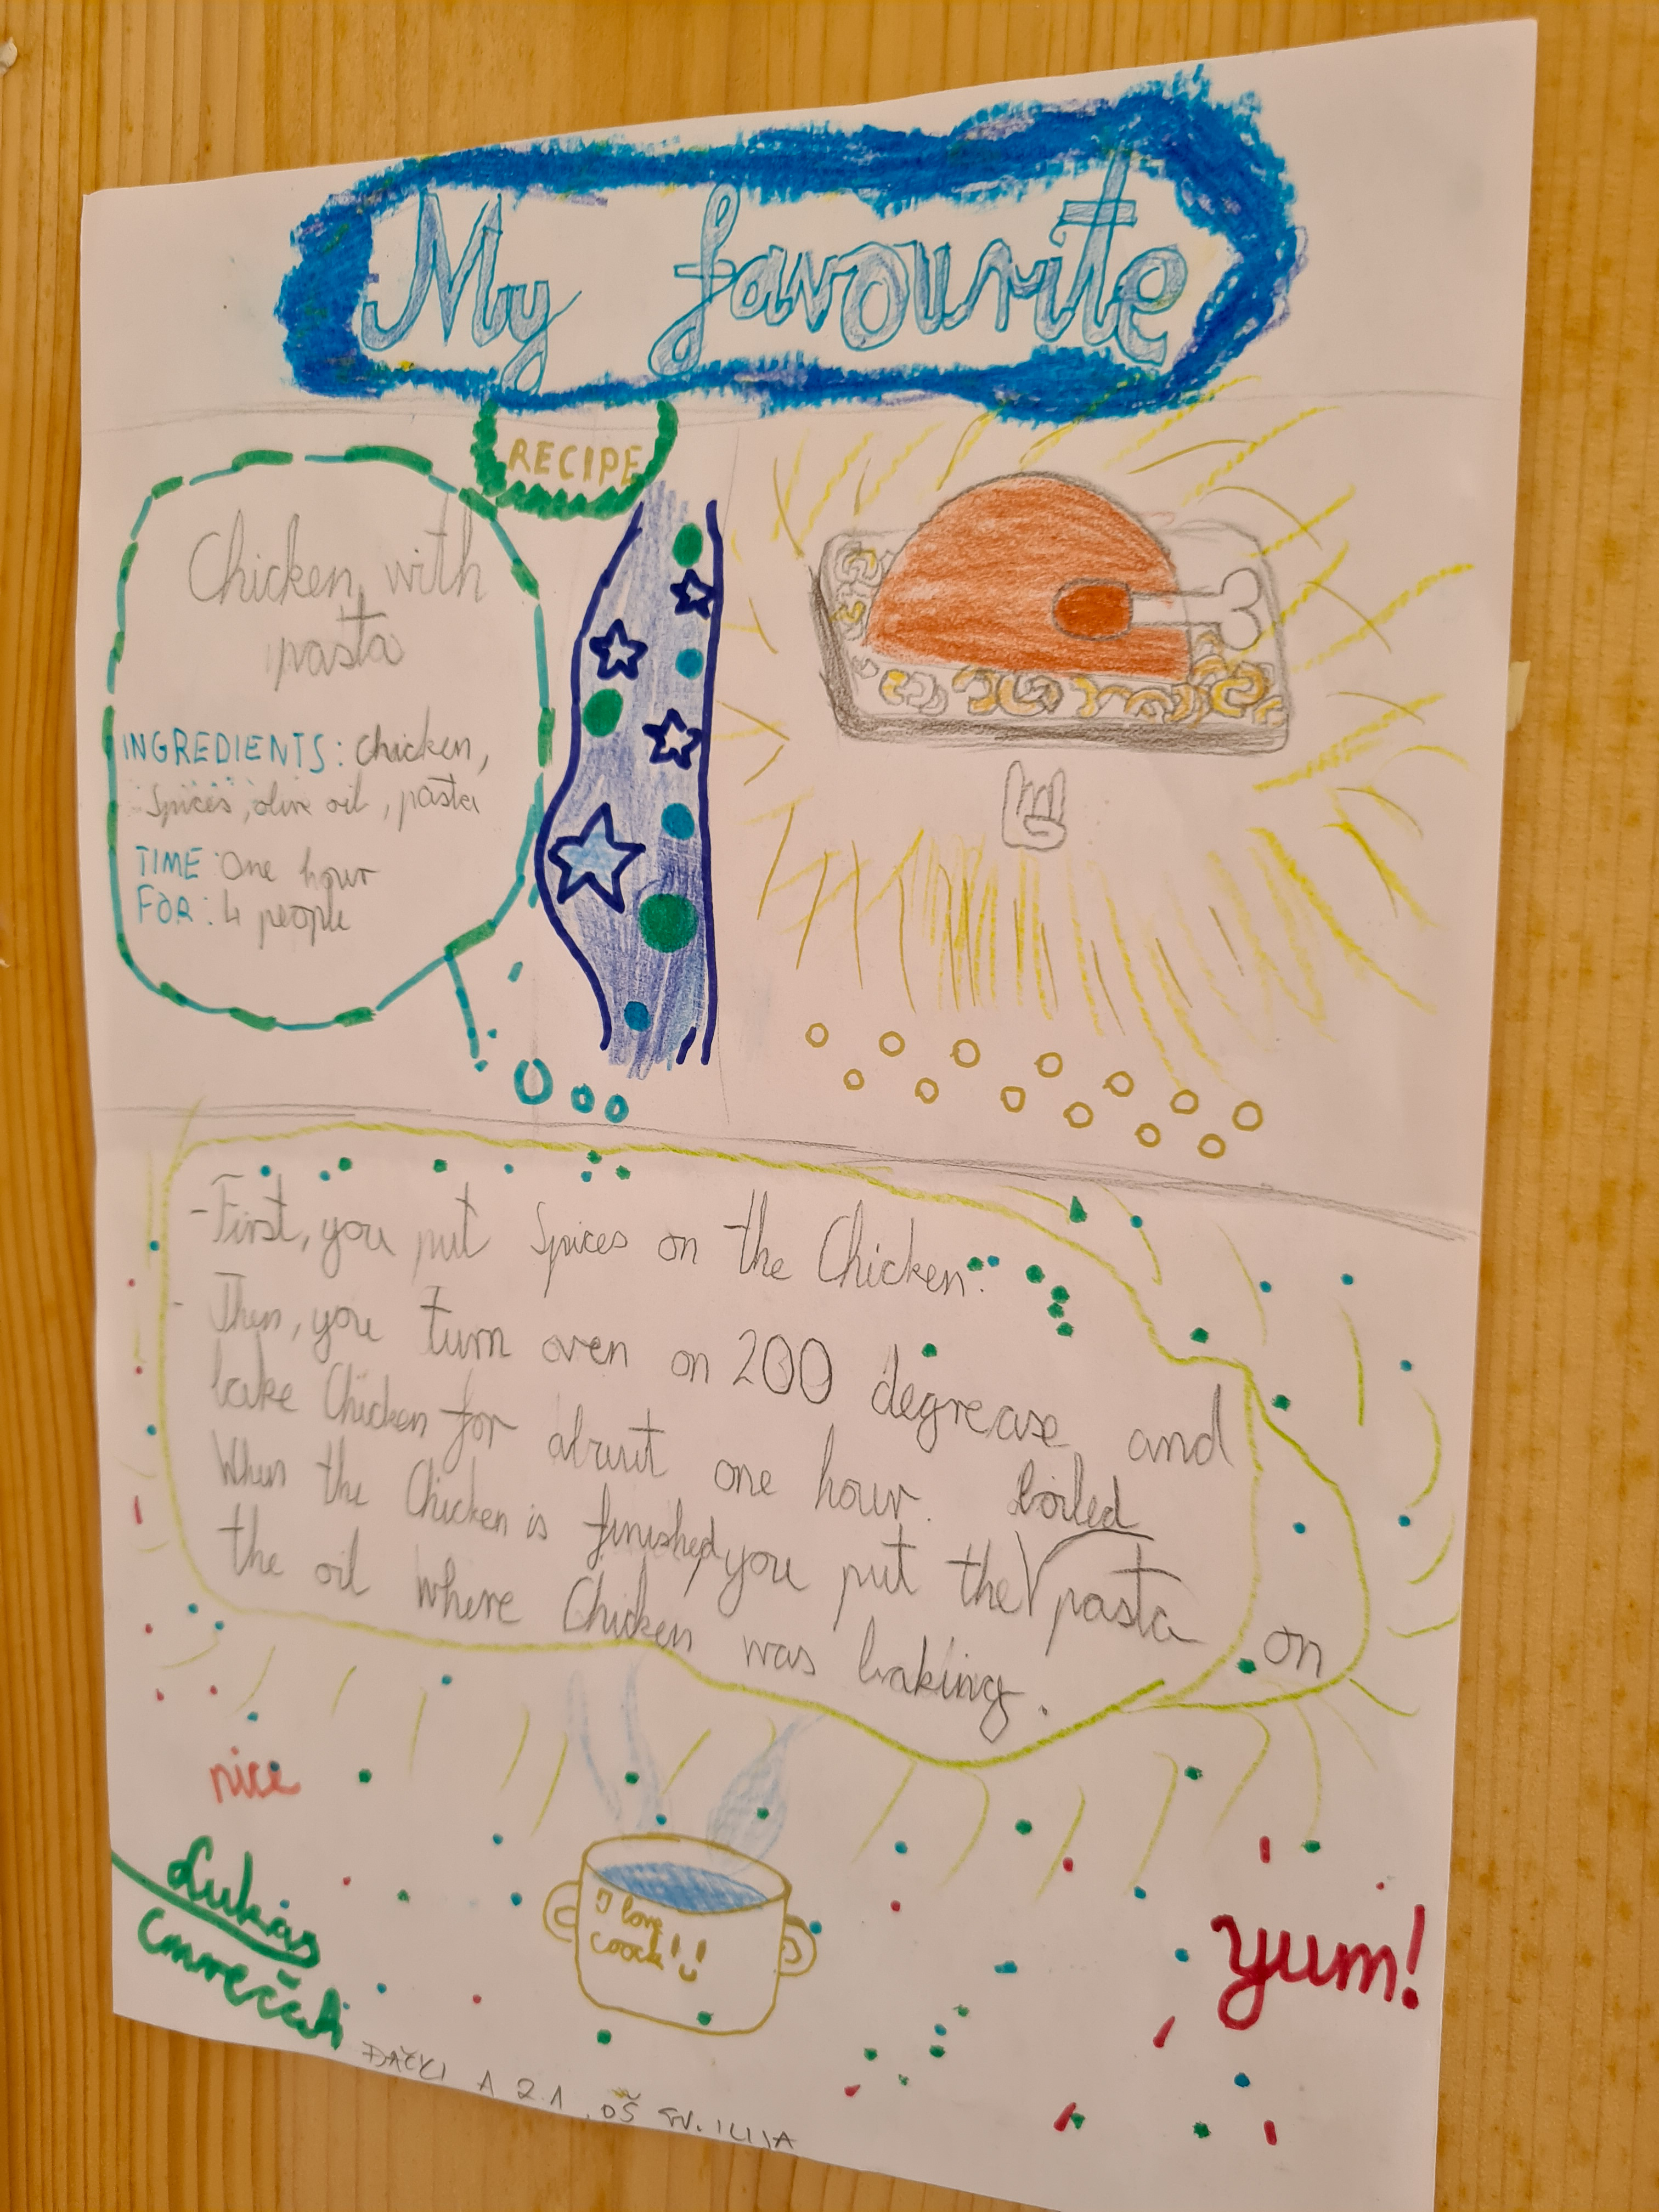 My favourite
RECIPE
Chicken with
pasta
INGREDIENTS: chicken,
Spices, olive oil, pasta
TIME: One hour
FOR: 4 people
- First, you put Spices on the Chicken.
- Then, you turn oven on 200 degrease and
bake Chicken for about one hour.
When the Chicken is finished, you put the boiled pasta on
the oil where Chicken was baking.
nice
I love
coock!!
yum!
Lukas
A 2.1, OŠ SV. ILIJA